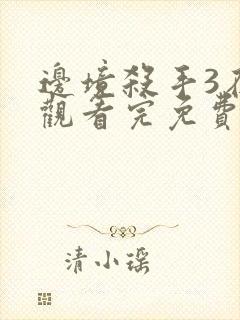 邊境殺手3
觀看完免費
清小瑶